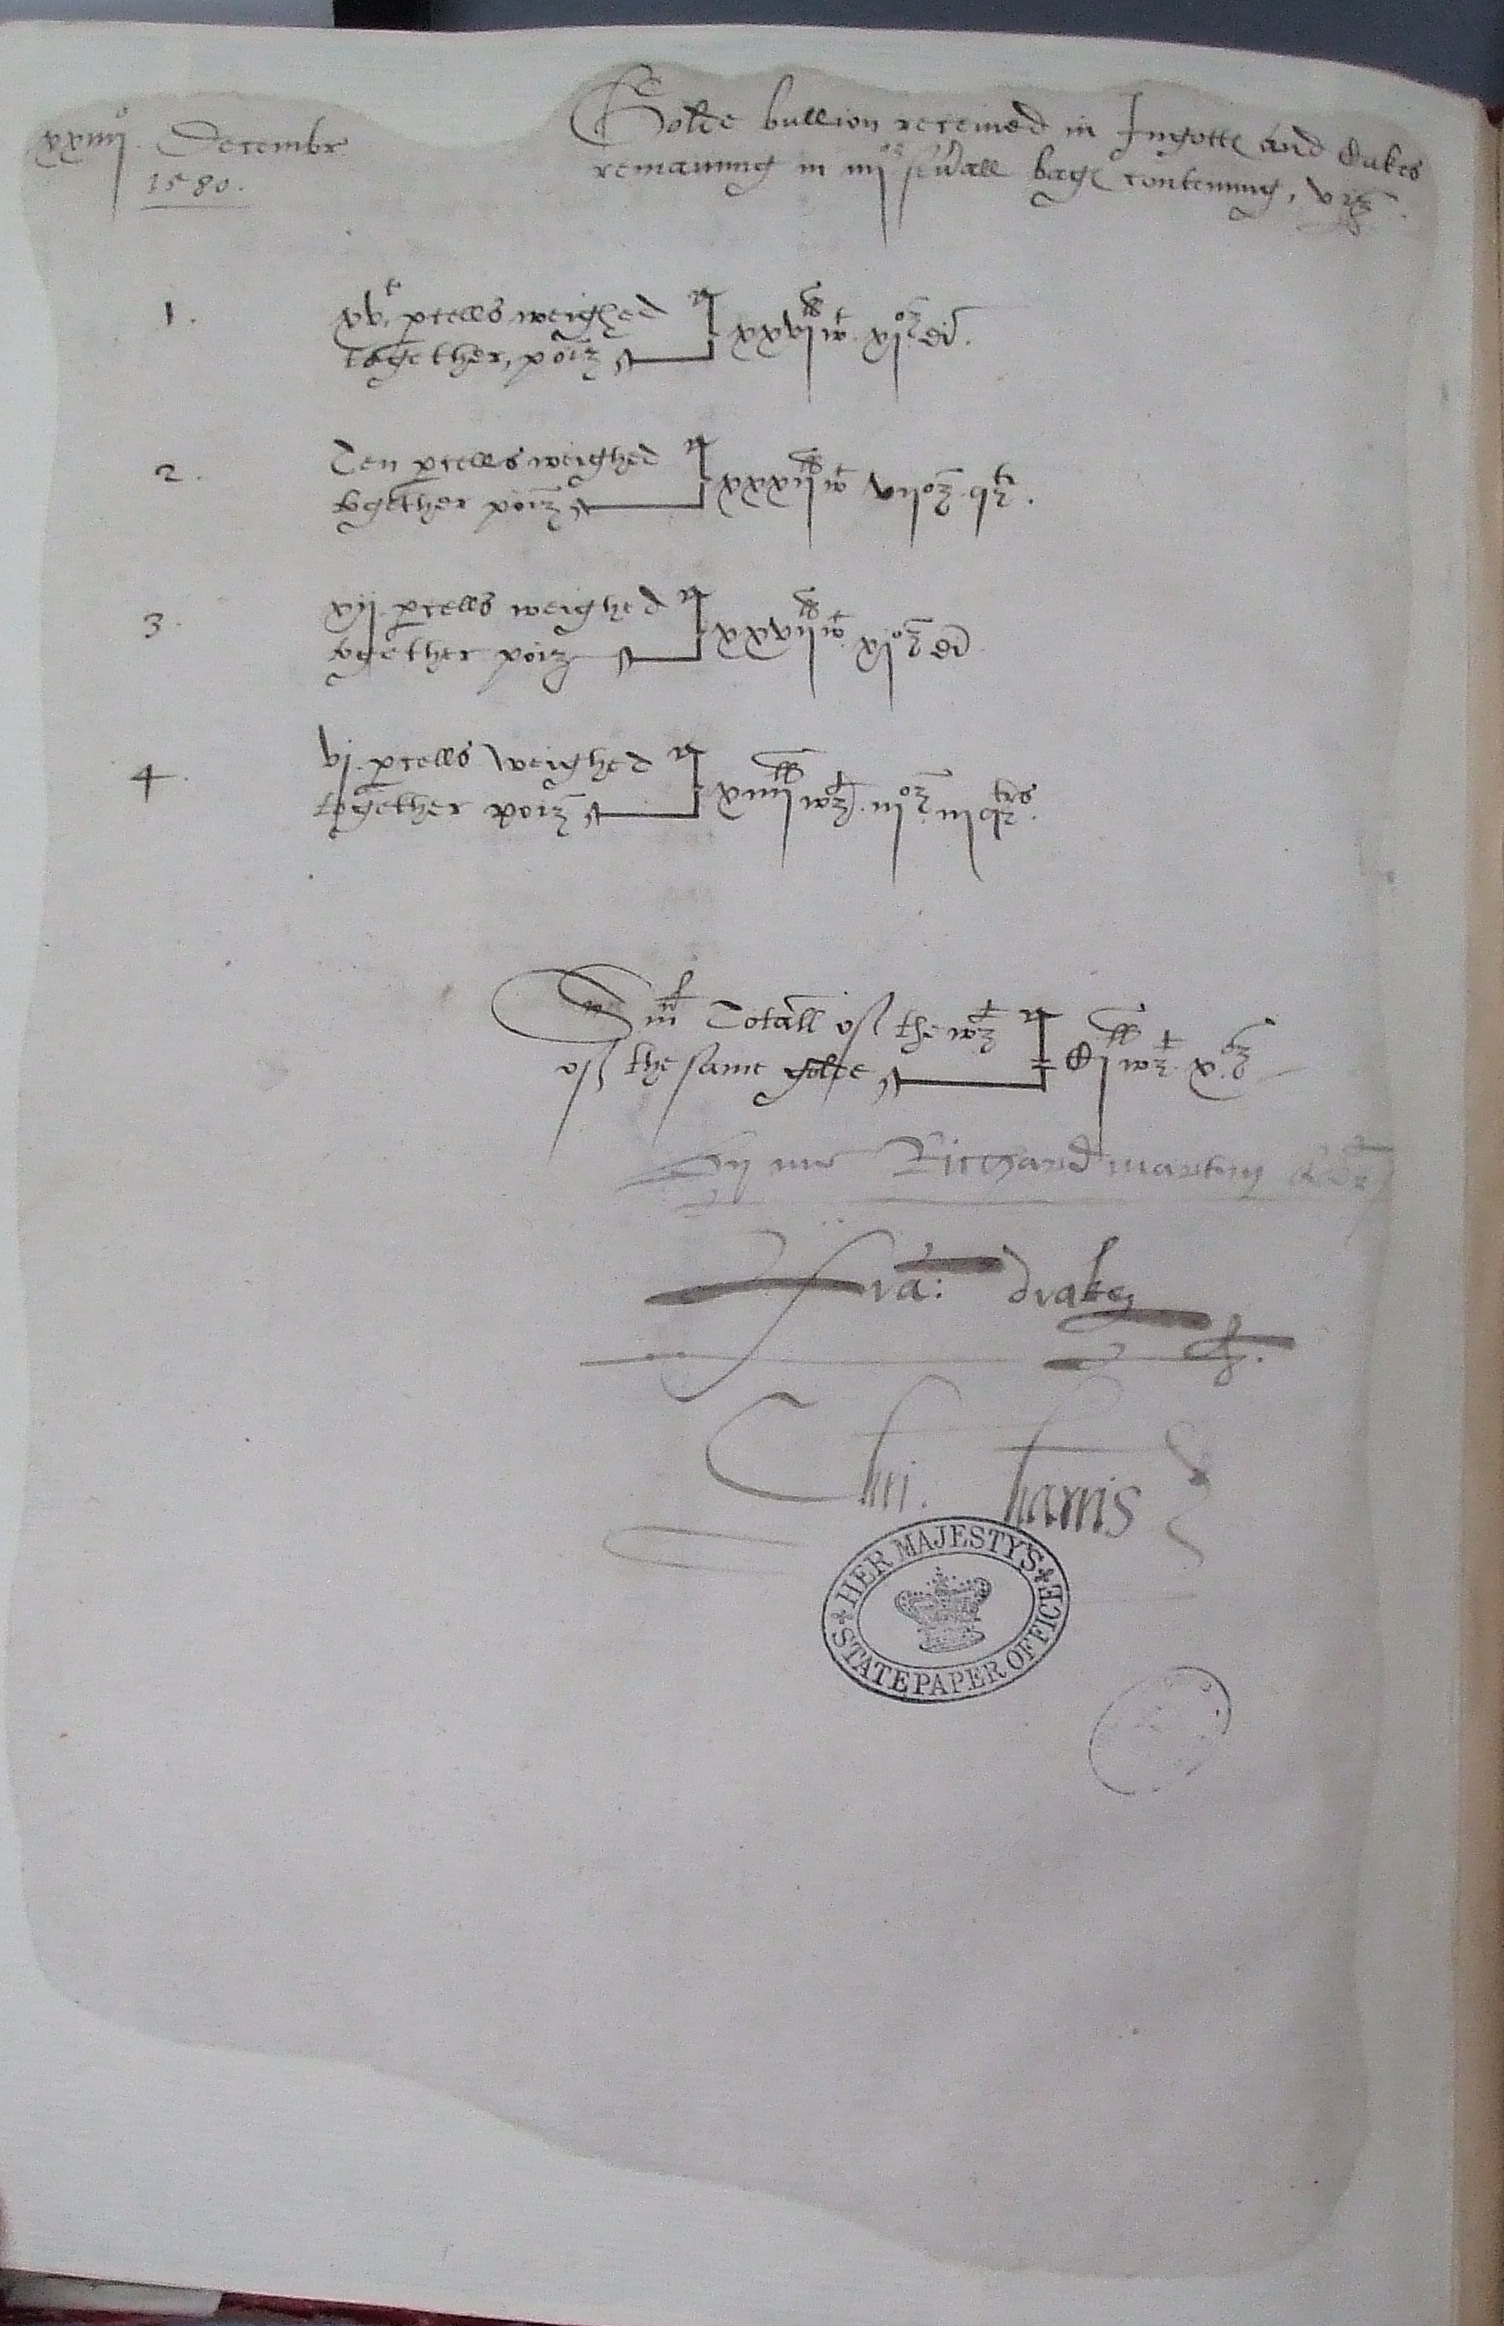 xxiiijº Decembr
1580.
Golde bullion receiued in Ingottes and Cakes
remaining in iiijor seũall bages conteining, vizt.
1. xv.te pcells weighed
together, poiz xxvjlb wt. xjoz di.
2. Ten pcells weighed
together poiz xxxijlb wt vijoz. qrt.
3. xij pcells weighed
together poiz xxvijlb wt. xjoz di
4. vj. pcells weighed
together poiz xiiijlb wt. iijoz. iijqrtrs.
Sm Totall of the wt
of the same golde Cjlb wt. x.oz
By me Richard martyn
Fra: Drake
Chri. Harris
HER MAJESTY'S
STATE PAPER OFFICE